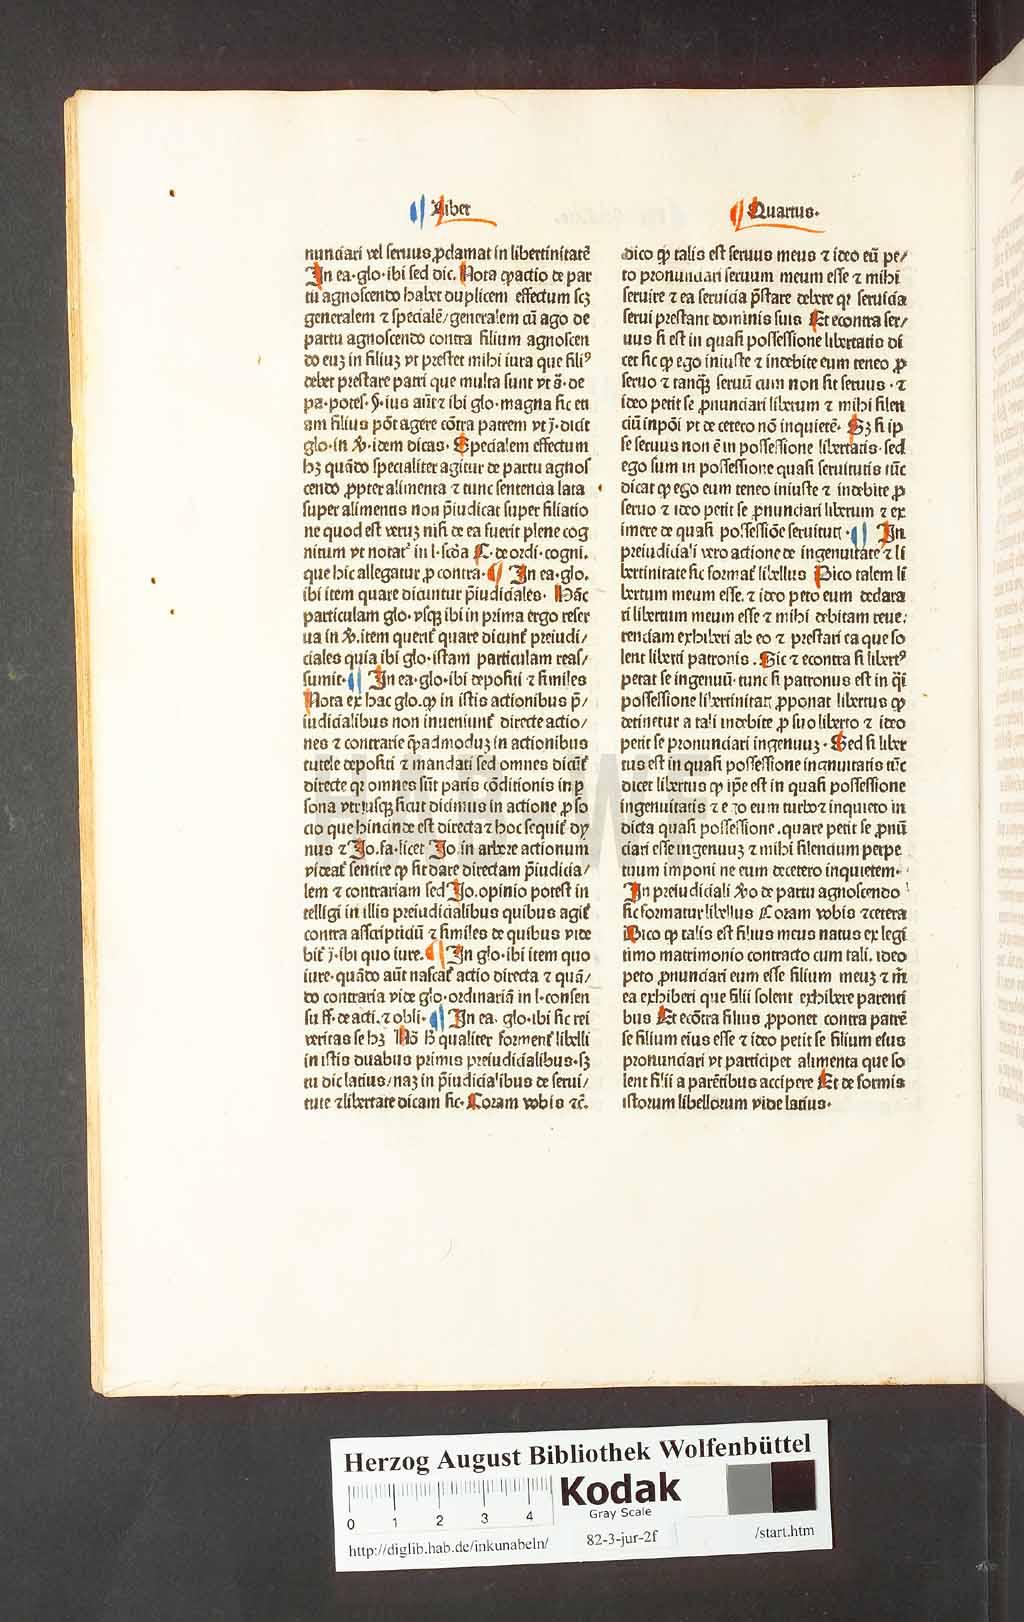 Liber
Quartus.
nunciari vel seruus ꝓclamat in libertinitatē
In ea·glo·ibi sed dic. Nota ꝙ actio de par
tu agnoscendo habet duplicem effectum scꝫ
generalem ⁊ specialē/generalem cū ago de
partu agnoscendo contra filium agnoscen
do euꝫ in filiuꝫ vt prestet mihi iura que filiꝰ
debet prestare patri que multa sunt vt s̄·de
pa·potes·§·ius aūt ⁊ ibi glo·magna sic eti
am filius pōt agere cōtra patrem vt j·dicit
glo·in ꝟ·idem dicas· Specialem effectum
hꝫ quādo specialiter agitur de partu agnos
cendo ꝓpter alimenta ⁊ tunc sentencia lata
super alimentis non p̄iudicat super filiatio
ne quod est veruꝫ nisi de ea fuerit plene cog
nitum vt notat᷑ in l·scd̄a C·de ordi·cogni.
que hic allegatur ꝓ contra· In ea·glo.
ibi item quare dicuntur p̄iudiciales· Hāc
particulam glo·vsqꝫ ibi in prima ergo reser
ua in ꝟ.item querit᷑ quare dicunt᷑ preiudi/
ciales quia ibi glo·istam particulam reas/
sumit· In ea·glo·ibi depositi ⁊ similes
Nota ex hac glo.ꝙ in istis actionibus p̄/
iudicialibus non inueniunt᷑ directe actio/
nes ⁊ contrarie q̄admoduꝫ in actionibus
tutele depositi ⁊ mandati sed omnes dicūt᷑
directe qꝛ omnes sūt paris cōditionis in ꝑ
sona vtriusqꝫ sicut dicimus in actione ꝓ so
cio que hincinde est directa ⁊ hoc sequit᷑ dy
nus ⁊ Jo.fa·licet Jo.in arbore actionum
videat᷑ sentire ꝙ sit dare directam p̄iudicia/
lem ⁊ contrariam sed Jo.opinio potest in
telligi in illis preiudicialibus quibus agit᷑
contra asscripticiū ⁊ similes de quibus vide
bit᷑ j·ibi quo iure. In glo·ibi item quo
iure·quādo aūt nascat᷑ actio directa ⁊ quā/
do contraria vide glo·ordinariā in l·consen
su ff·de acti.⁊ obli· In ea.glo·ibi sic rei
veritas se hꝫ Nō hꝰ qualiter forment᷑ libelli
in istis duabus primis preiudicialibus·sꝫ
tu dic latius/naꝫ in p̄iudicialibus de serui/
tute ⁊ libertate dicam sic· Coram vobis ⁊c̄.
dico ꝙ talis est seruus meus ⁊ ideo eū pe/
to pronunciari seruum meum esse ⁊ mihi
seruire ⁊ ea seruicia p̄stare debere qꝛ seruicia
serui prestant dominis suis Et econtra ser/
uus si est in quasi possessione libertatis di
cet sic ꝙ ego iniuste ⁊ indebite eum teneo ꝓ
seruo ⁊ tanqꝫ seruū cum non sit seruus·⁊
ideo petit se ꝓnunciari liberum ⁊ mihi silen
ciū inpōi vt de cetero nō inquietē· Sꝫ si ip
se seruus non ē in possessione libertatis·sed
ego sum in possessione quasi seruitutis tūc
dicat ꝙ ego eum teneo iniuste ⁊ indebite ꝓ
seruo ⁊ ideo petit se ꝓnunciari liberum ⁊ ex
imere de quasi possessiōe seruitut· In
preiudiciali vero actione de ingenuitate ⁊ li
bertinitate sic format᷑ libellus Dico talem li
bertum meum esse.⁊ ideo peto eum declara
ri libertum meum esse ⁊ mihi debitam reue:
renciam exhiberi ab eo ⁊ prestari ea que so
lent liberti patronis. Sic ⁊ econtra si libertꝰ
petat se ingenuū·tunc si patronus est in q̄i
possessione libertinitat ꝓponat libertus ꝙ
detinetur a tali indebite ꝓ suo liberto ⁊ ideo
petit se pronunciari ingenuuꝫ· Sed si liber
tus est in quasi possessione ingnuitatis tūc
dicet libertus ꝙ ip̄e est in quasi possessione
ingenuitatis ⁊ ego eum turbo ⁊ inquieto in
dicta quasi possessione.quare petit se ꝓnū
ciari esse ingenuuꝫ ⁊ mihi silencium perpe
tuum imponi ne eum decetero inquietem·
In preiudiciali ꝟo de partu agnoscendo
sic formatur libellus Coram vobis ⁊cetera
Dico ꝙ talis est filius meus natus ex legi
timo matrimonio contracto cum tali. ideo
peto ꝓnunciari eum esse filium meuꝫ ⁊ m̄
ea exhiberi que filii solent exhibere parenti
bus Et ecōtra filius ꝓponet contra patrē
se filium eius esse ⁊ ideo petit se filium eius
pronunciari vt participet alimenta que so
lent filii a parētibus accipere Et de formis
istorum libellorum vide latius·
HAB-WF
Herzog August Bibliothek Wolfenbüttel
0 1 2 3 4
Kodak
Gray Scale
http://diglib.hab.de/inkunabeln/ 82-3-jur-2f /start.htm